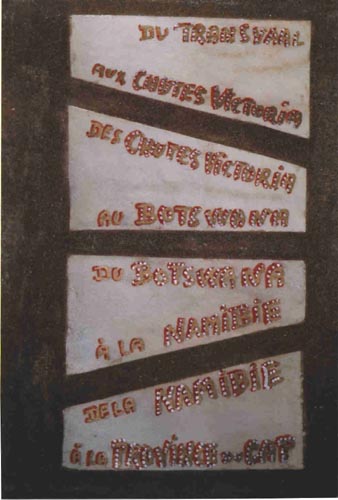 DU TRANSVAAL
AUX CHUTES VICTORIA
DES CHUTES VICTORIA
AU BOTSWANA
DU BOTSWANA
À LA NAMIBIE
DE LA NAMIBIE
À LA PROVINCE DU CAP